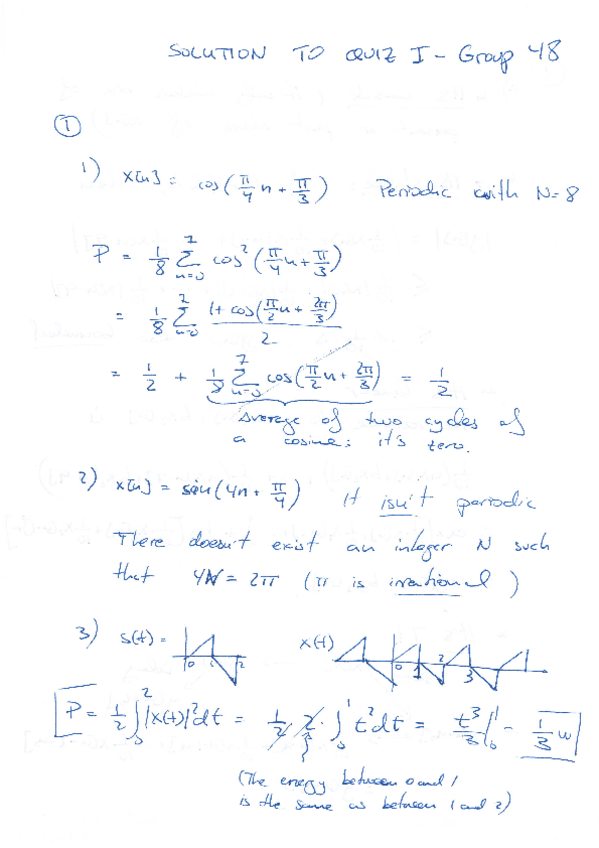 SOLUTION TO QUIZ I - Group 48
①
1) x[n] = cos(π/4 n + π/3) Periodic with N=8
P = 1/8 Σ_{n=0}^{7} cos²(π/4 n + π/3)
= 1/8 Σ_{n=0}^{7} (1 + cos(π/2 n + 2π/3))/2
= 1/2 + 1/8 Σ_{n=0}^{7} cos(π/2 n + 2π/3) = 1/2
Average of two cycles of
a cosine: it's zero.
2) x[n] = sin(4n + π/4) It isn't periodic
There doesn't exist an integer N such
that 4N = 2π (π is irrational)
3) s(t) = 0 1 2 x(t) 0 1 2 3
P = 1/2 ∫_0^2 |x(t)|² dt = 1/2 · 2 · ∫_0^1 t² dt = t³/3 |_0^1 = 1/3 w
(The energy between 0 and 1
is the same as between 1 and 2)